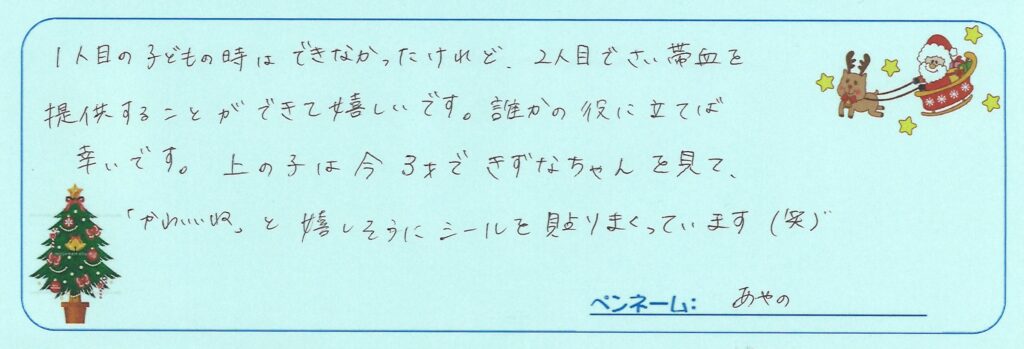 1人目の子どもの時はできなかったけれど、2人目でさい帯血を
提供することができて嬉しいです。誰かの役に立てば
幸いです。上の子は今3才できずなちゃんを見て、
「かわいいね」と嬉しそうにシールを貼りまくっています(笑)
ペンネーム: あやの